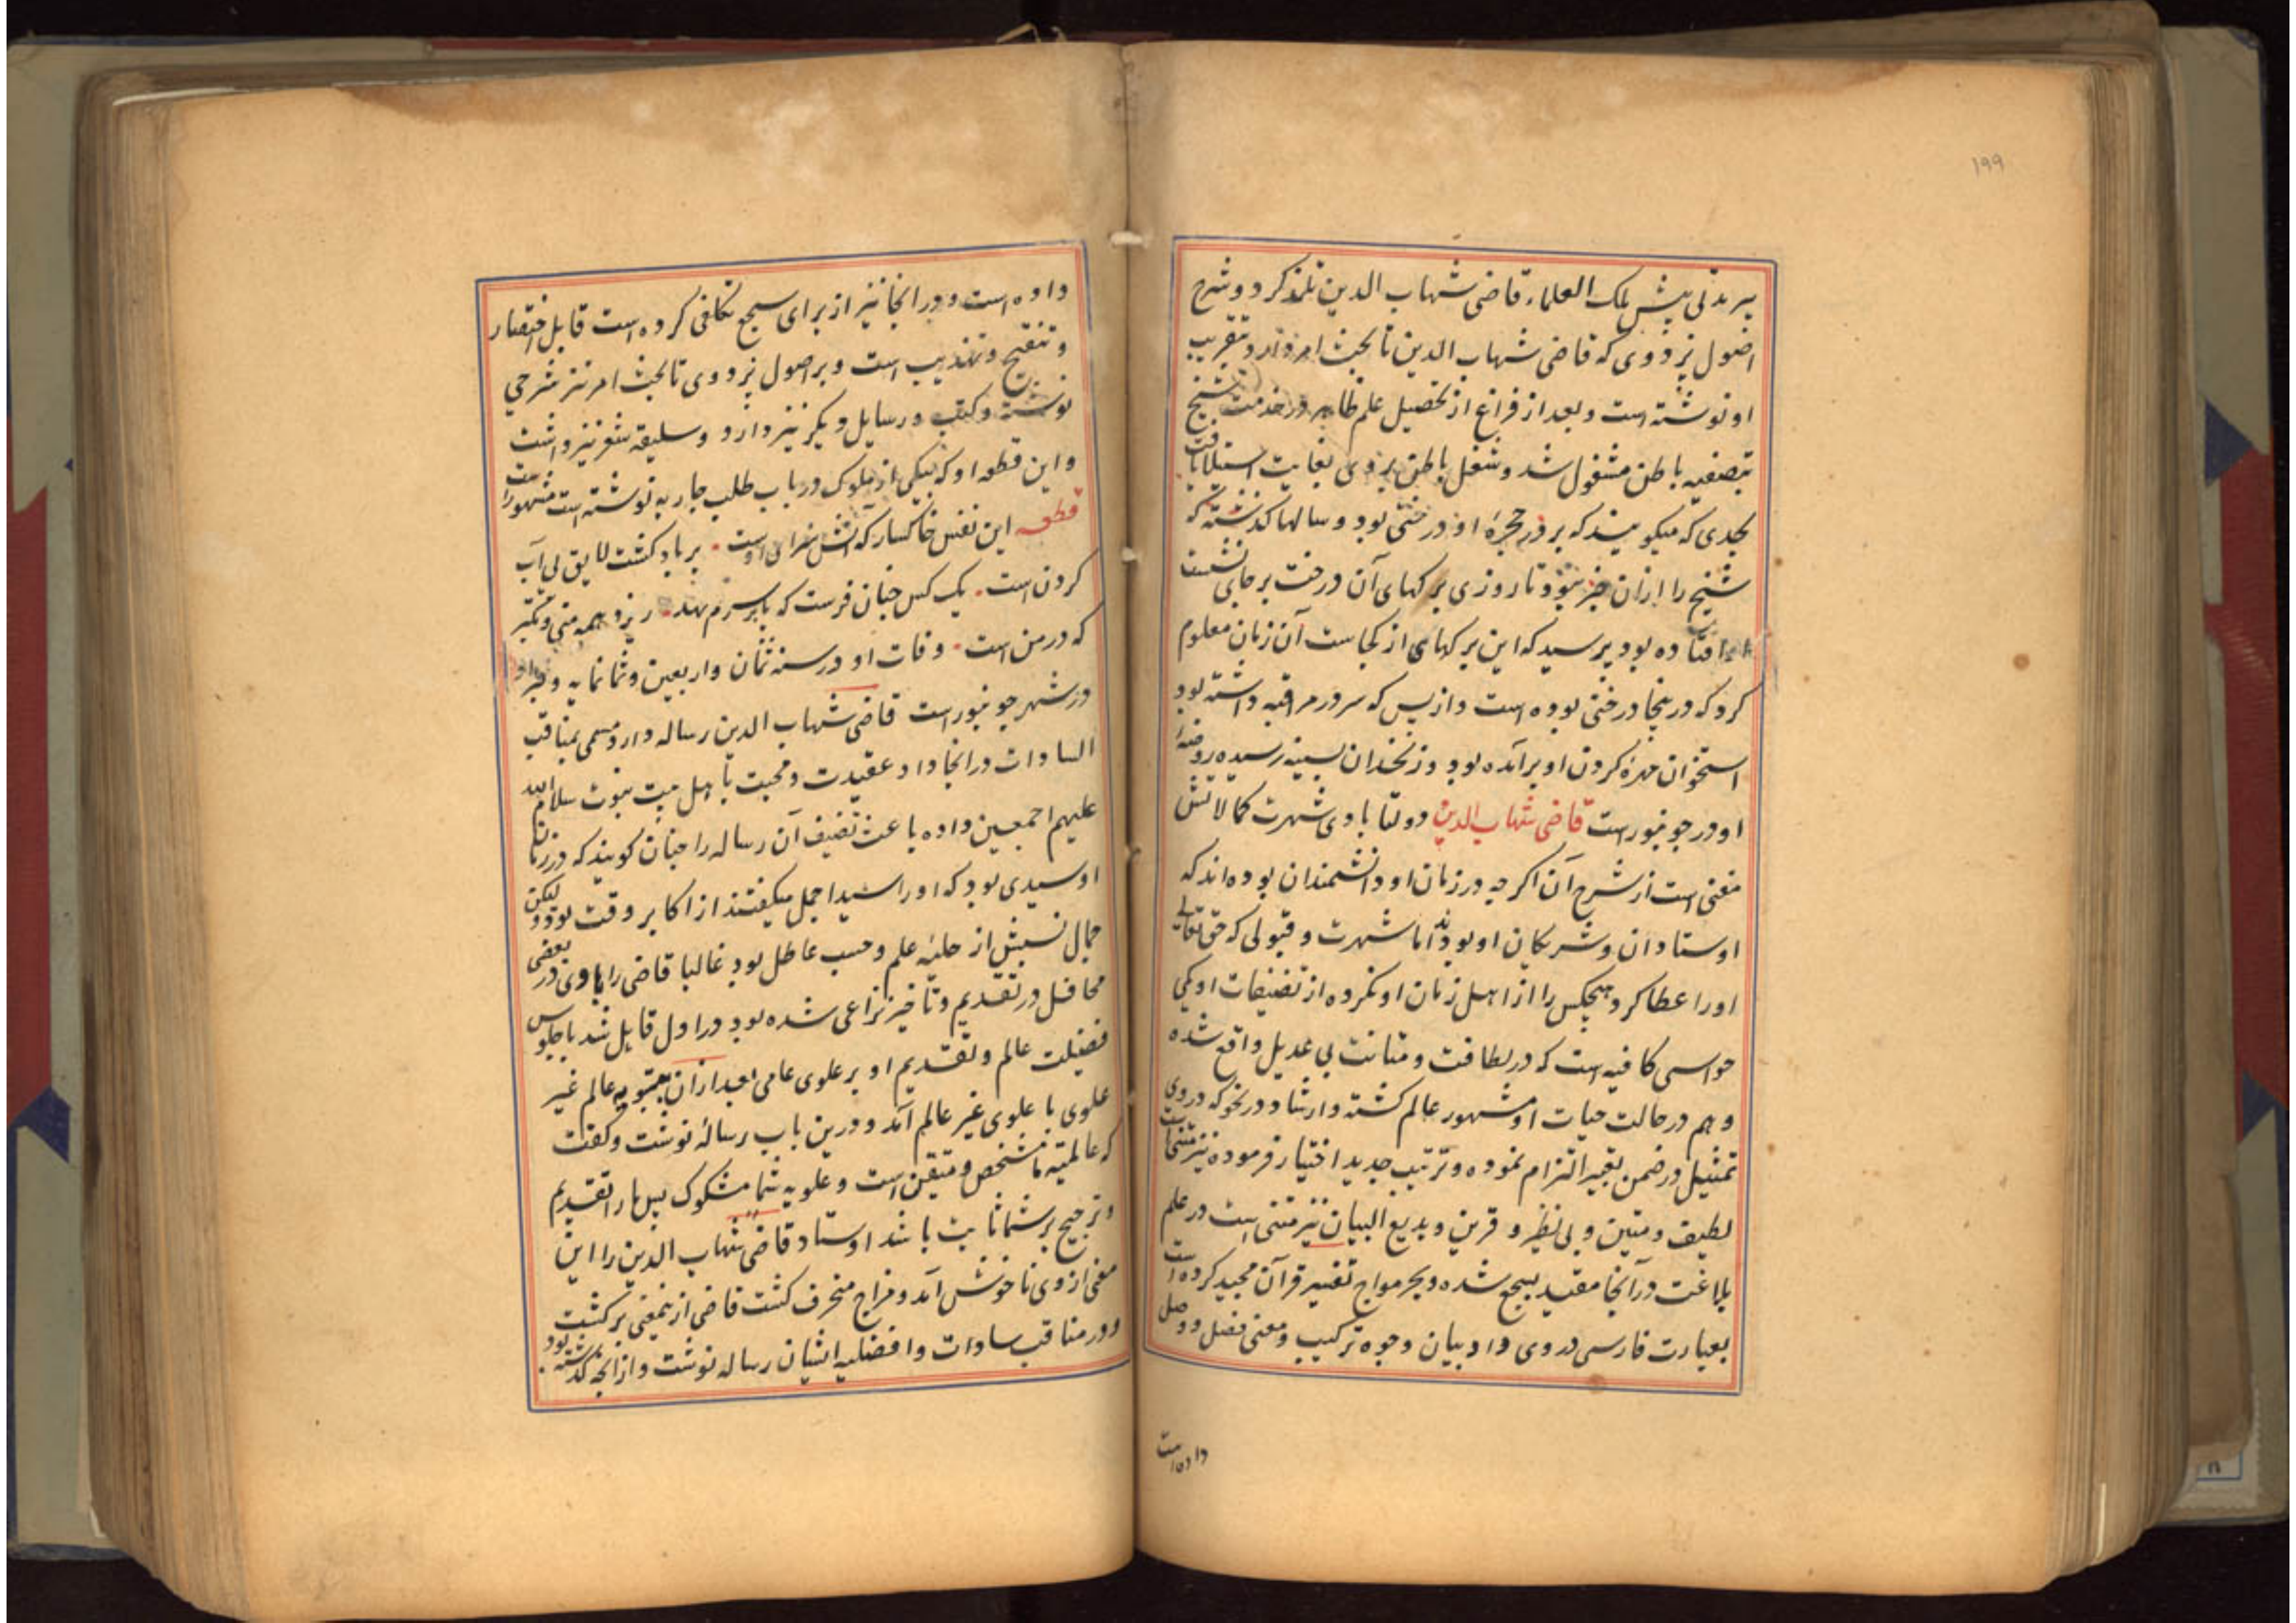 ۱۹۹
پیر مدتی پیش ملک العلماء قاضی شهاب الدین تلمذ کرد و شرح
اصول بزدوی که قاضی شهاب الدین تا بحث امر دارد بتقریب
او نوشته است و بعد از فراغ از تحصیل علم ظاهر در خدمت شیخ
بتصفیه باطن مشغول شد و شغل باطن بروی بغایت استیلا یافت
بحدی که میکویند که بر در حجرهٔ او درختی بود و سالها کذشته که
شیخ را ازان خبر نبود تا روزی برکهای آن درخت بر جای نشست
افتاده بود پرسید که این برکهای از کجاست آن زمان معلوم
کرد که درینجا درختی بوده است و از بس که سر در مراقبه داشته بود
استخوان مهرهٔ کردن او برآمده بود و زنخدان بسینه رسیده روضهٔ
او در جونپورست قاضی شهاب الدین دولتابادی شهرت کمالاتش
مغنی است از شرح آن اکرچه در زمان او دانشمندان بوده اند که
اوستادان و شریکان او بودند اما شهرت و قبولی که حق تعالی
او را عطا کرد هیچکس را از اهل زمان او نکرده از تصنیفات او یکی
حواسی کافیه است که در لطافت و متانت بی عدیل واقع شده
و هم در حالت حیات او مشهور عالم کشته و ارشاد در نحو که در وی
تمثیل در ضمن تعبیر التزام نموده و ترتیب جدید اختیار فرموده نیز متنی است
لطیف و متین و بی نظیر و قرین و بدیع البیان نیز متنی است در علم
بلاغت در آنجا مقید بسجع شده و بحر مواج تفسیر قرآن مجید کرده است
بعبارت فارسی در وی داد بیان وجوه ترکیب و معنی فصل و وصل
داده است
داده است و در انجا نیز از برای سجع تکافی کرده است قابل اختصار
و تنقیح و تهذیب است و بر اصول بزدوی تا بحث امر نیز شرحی
نوشته و کتب و رسایل دیکر نیز دارد و سلیقه شعر نیز داشت
و این قطعه او که بیکی از ملوک در باب طلب جاریه نوشته است مشهور است
قطعه این نفس خاکسار که آتش سزای اوست • بر باد کشت لایق بی آب
کردن است • یک کس چنان فرست که پا بر سرم نهد • ریزد همه منی و تکبر
که در من است • وفات او در سنه ثمان و اربعین و ثمانمایه و قبر او
در شهر جونپور است قاضی شهاب الدین رساله دارد مسمی بمناقب
السادات در انجا داد عقیدت و محبت با اهل بیت نبوت سلام الله
علیهم اجمعین داده باعث تصنیف آن رساله را چنان کویند که در زمان
او سیدی بود که او را سید اجمل میکفتند از اکابر وقت بود و لیکن
جمال نسبش از حلیهٔ علم و حسب عاطل بود غالبا قاضی را با وی در بعضی
محافل در تقدیم و تاخیر نزاعی شده بود در اول قابل شد با جلوس
فضیلت عالم و تقدیم او بر علوی عامی بعد ازان عالم غیر
علوی با علوی غیر عالم آمد و درین باب رسالهٔ نوشت و کفت
که عالمیته ما مشخص و متیقن است و علویه شما مشکوک پس ما را تقدیم
و ترجیح بر شما ثابت باشد اوستاد قاضی شهاب الدین را این
معنی از وی ناخوش آمد و مزاج منحرف کشت قاضی از ینمعنی برکشت
و در مناقب سادات و افضلیه ایشان رساله نوشت و از انچه کذشته بود